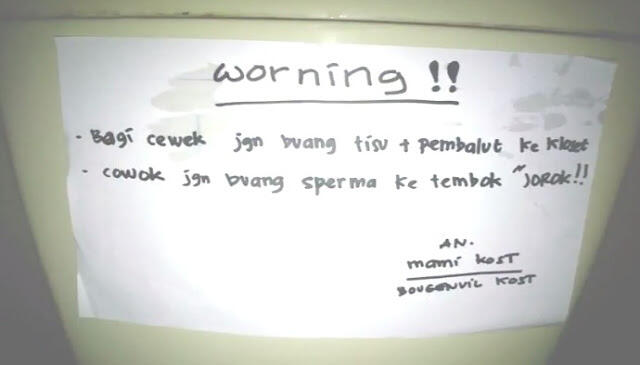 worning !!
- Bagi cewek jgn buang tisu + pembalut ke kloset
- cowok jgn buang sperma ke tembok "JOROK!!
AN.
mami kost
BOUGENVIL KOST